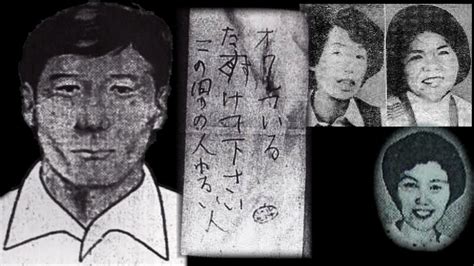 オワれている
たすけて下さい
この男の人わるい人